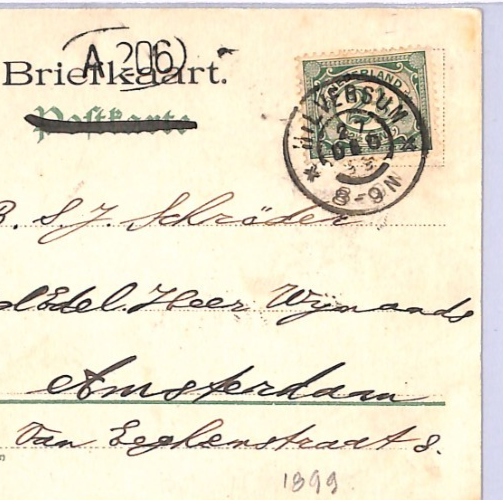 A 206
Briefkaart.
Postkarte
NEDERLAND
HILVERSUM
8-9 N
B. S. J. Schröder
dEdel. Heer Wijnands
Amsterdam
Van Eeghenstraat 8.
1899